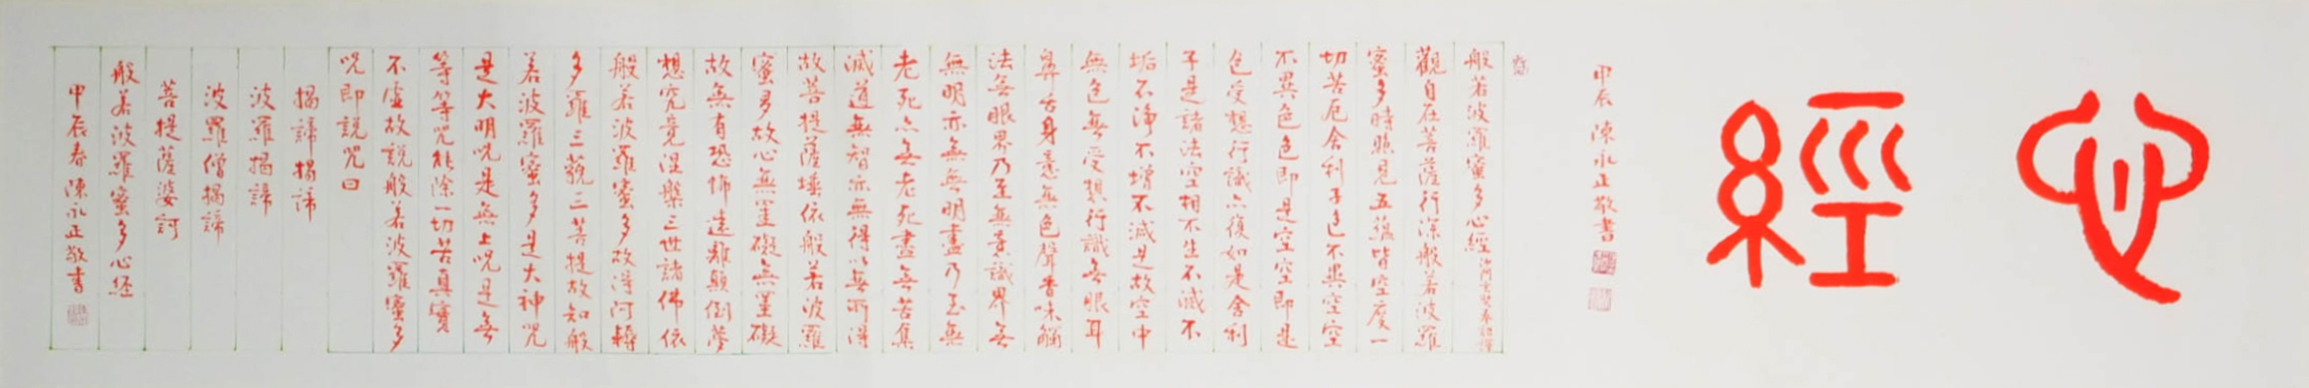 心經
甲辰 陳永正敬書
般若波羅蜜多心經 沙門玄奘奉詔譯
觀自在菩薩行深般若波羅
蜜多時照見五蘊皆空度一
切苦厄舍利子色不異空空
不異色色即是空空即是
色受想行識亦復如是舍利
子是諸法空相不生不滅不
垢不淨不增不減是故空中
無色無受想行識無眼耳
鼻舌身意無色聲香味觸
法無眼界乃至無意識界無
無明亦無無明盡乃至無
老死亦無老死盡無苦集
滅道無智亦無得以無所得
故菩提薩埵依般若波羅
蜜多故心無罣礙無罣礙
故無有恐怖遠離顛倒夢
想究竟涅槃三世諸佛依
般若波羅蜜多故得阿耨
多羅三藐三菩提故知般
若波羅蜜多是大神咒
是大明咒是無上咒是無
等等咒能除一切苦真實
不虛故說般若波羅蜜多
咒即說咒曰
揭諦揭諦
波羅揭諦
波羅僧揭諦
菩提薩婆訶
般若波羅蜜多心經
甲辰春 陳永正敬書